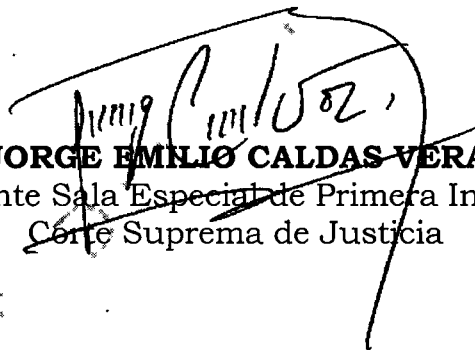 JORGE EMILIO CALDAS VERA
nte Sala Especial de Primera In
Corte Suprema de Justicia